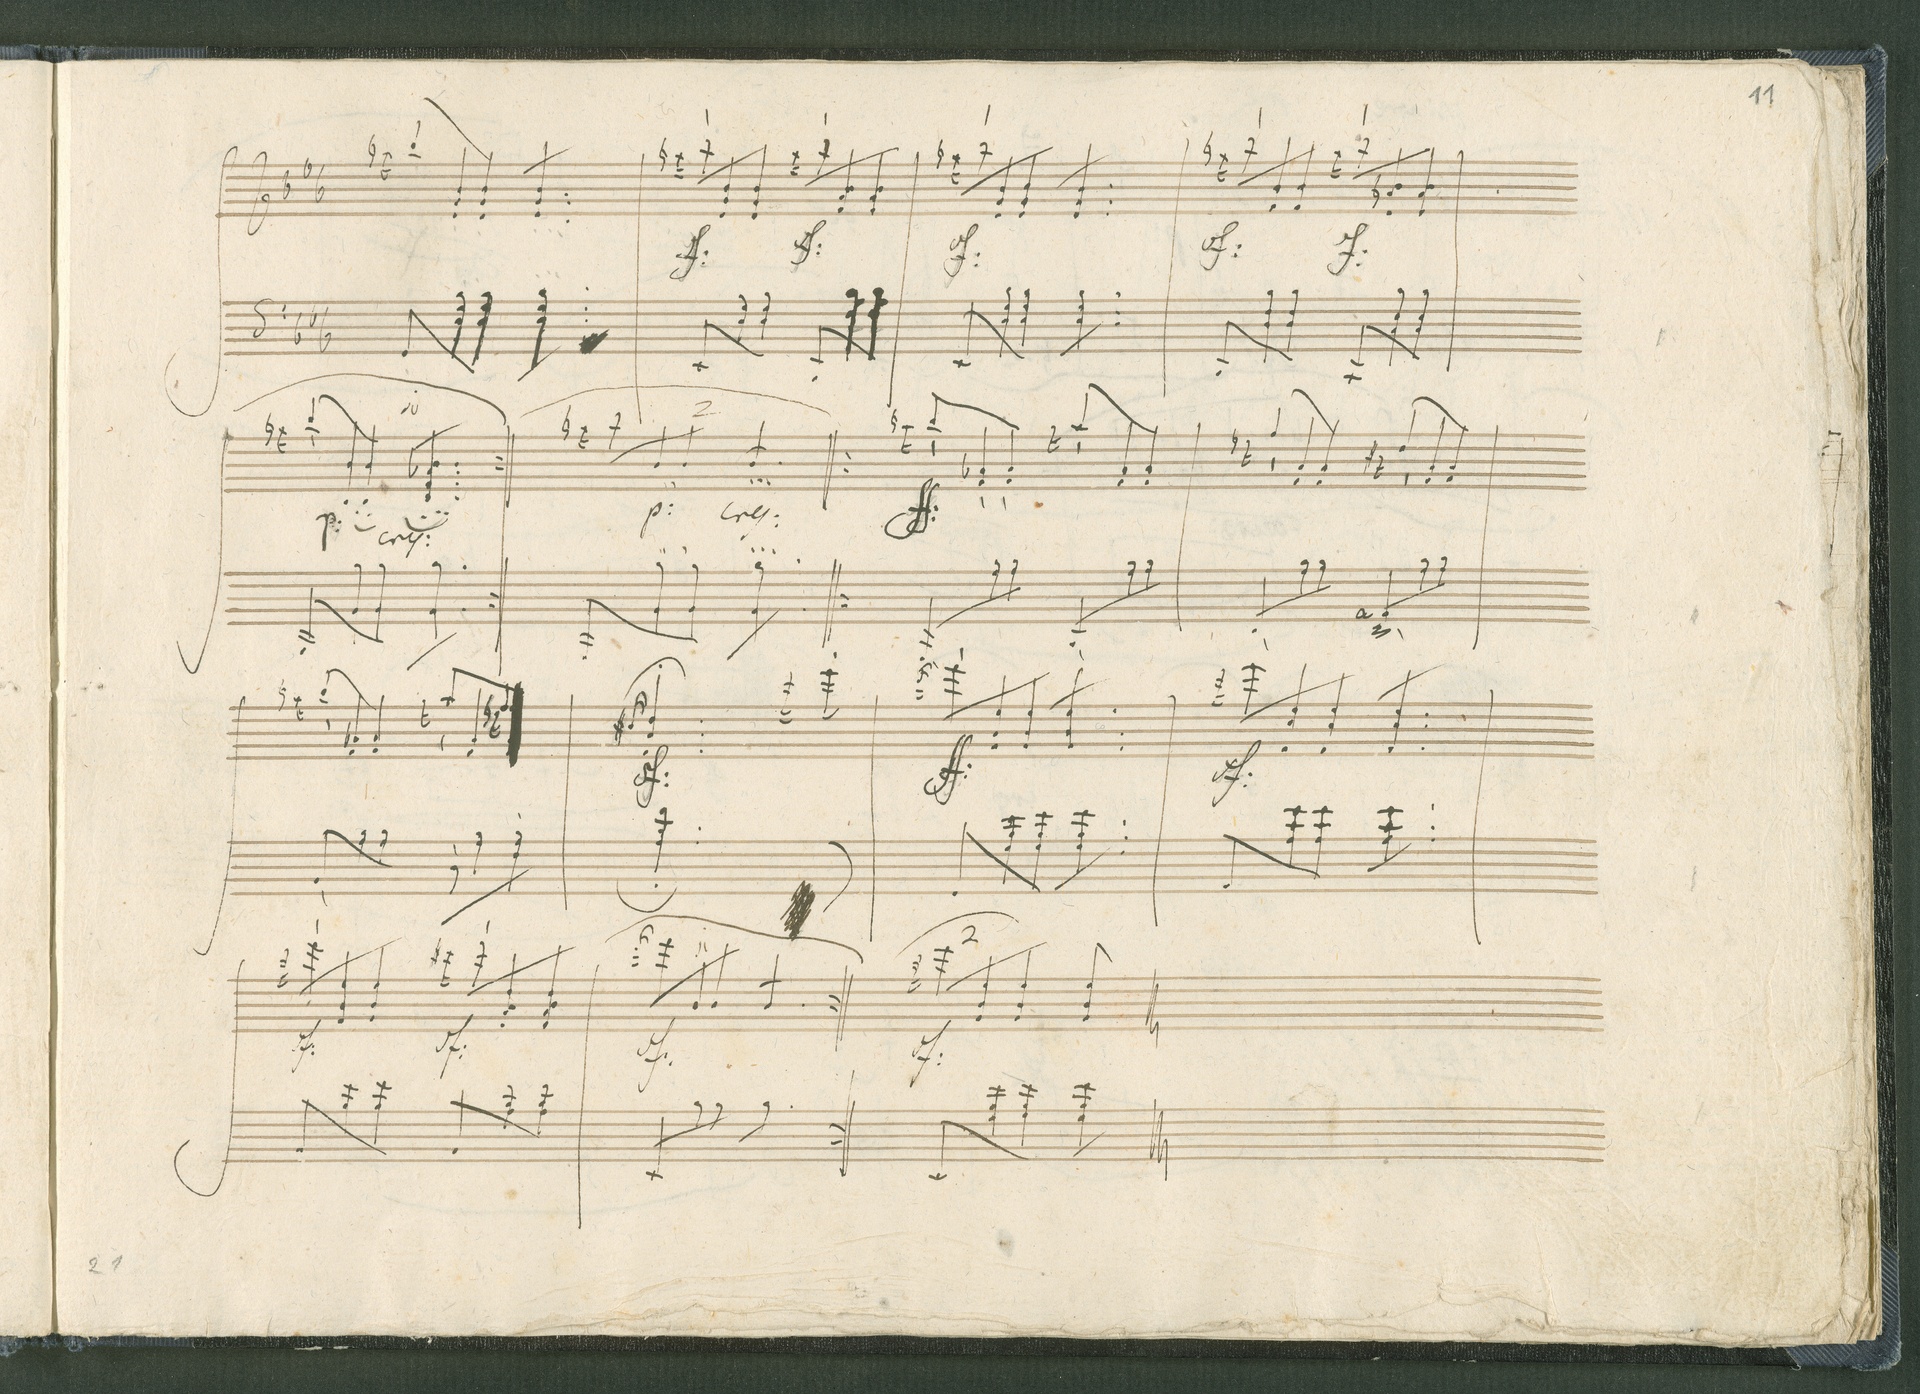 11
sf: sf: sf: sf: sf:
2
p: cres: p: cres: ff:
a
sf: ff: sf:
2
sf: sf: sf: sf:
21